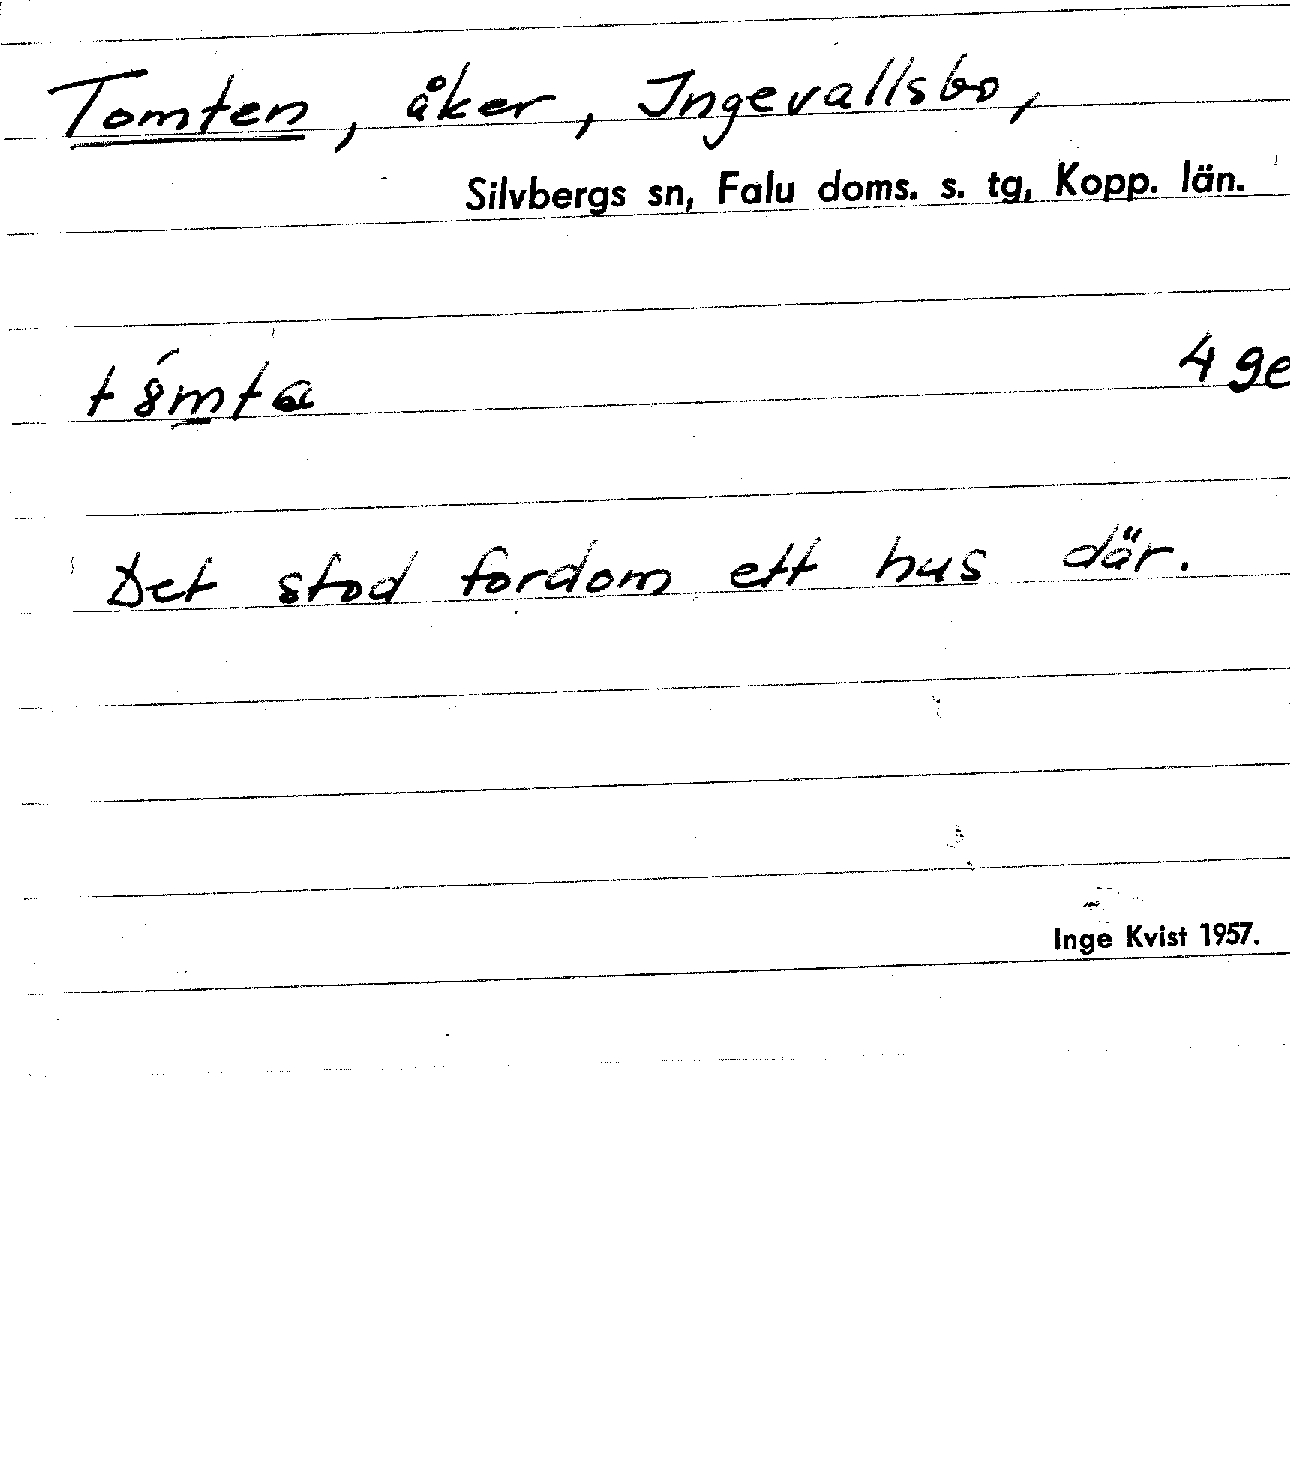 Tomten, åker, Ingevallsbo,
Silvbergs sn, Falu doms. s. tg, Kopp. län.
4 ge
Det stod fordom ett hus där.
Inge Kvist 1957.